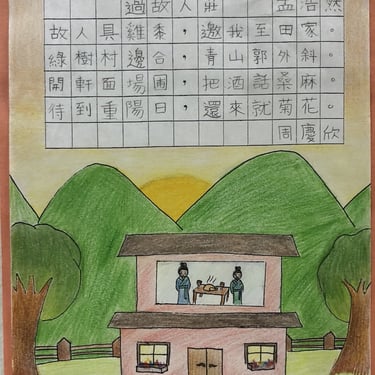 過故人莊 孟浩然
故人具雞黍，邀我至田家。
綠樹村邊合，青山郭外斜。
開軒面場圃，把酒話桑麻。
待到重陽日，還來就菊花。
周慶欣